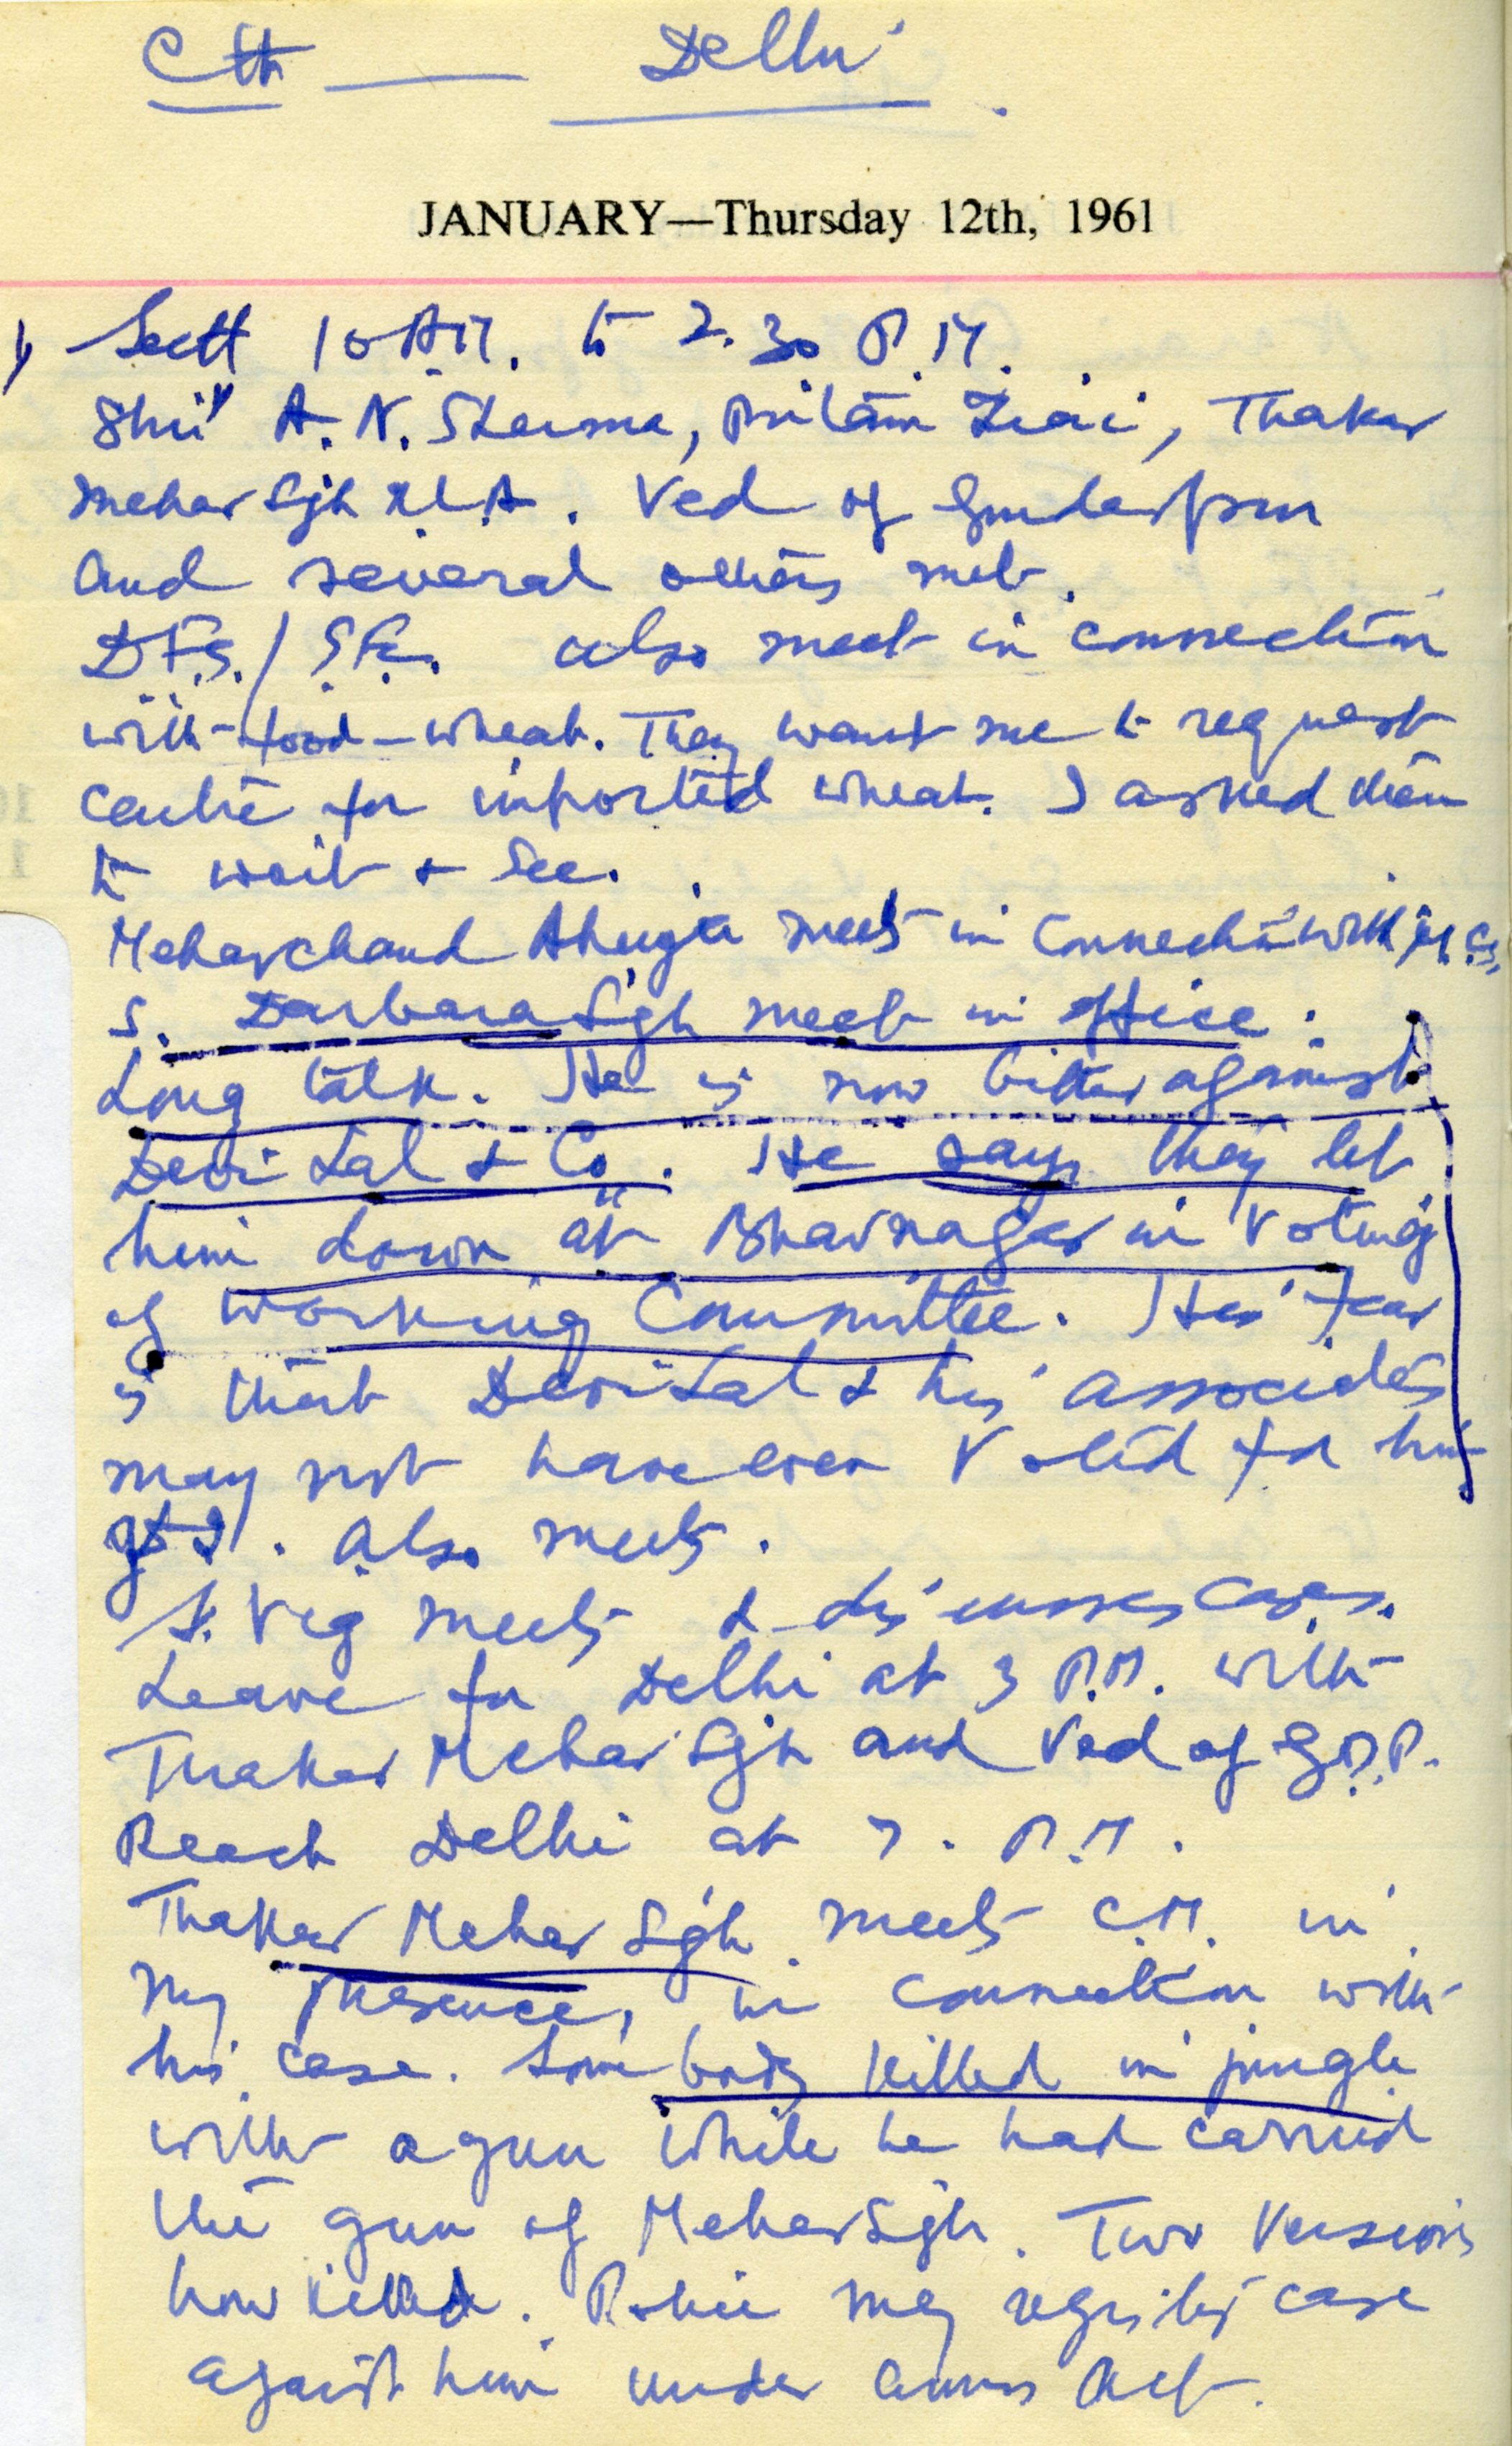 Cth — Delhi
JANUARY—Thursday 12th, 1961
1) Sectt 10 AM. to 2.30 P.M.
Shri A. N. Sharma, Pritam, Thakar
Mehar Sgh M.L.A. Ved of Gurdaspur
and several others met.
D.F.S./ also meet in connection
with food-wheat. They want me to request
centre for imported wheat. I asked them
to wait & See.
Meharchand Ahuja meets in connection with
S. Darbara Sgh meets in office.
Long talk. He is now bitter against
Devi Lal & Co. He says they let
him down at Bhavnagar in voting
of working Committee. His fear
is that Devi Lal & his associates
may not have even voted for him
also meets.
S. Vig meets & discusses cases.
Leave for Delhi at 3 P.M. with
Thakar Mehar Sgh and Ved of G.D.P.
Reach Delhi at 7. P.M.
Thakar Mehar Sgh meets C.M. in
my presence, in connection with
his case. Some body killed in jungle
with a gun while he had carried
the gun of Mehar Sgh. Two versions
how killed. Police may register case
against him under Arms Act.